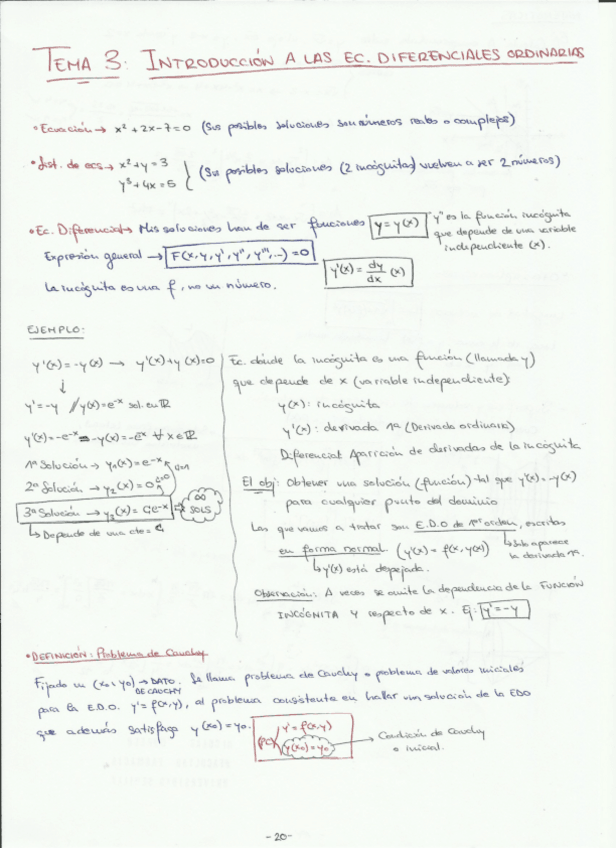 TEMA 3: INTRODUCCIÓN A LAS EC. DIFERENCIALES ORDINARIAS
• Ecuación → x² + 2x - 7 = 0 (Sus posibles soluciones son números reales o complejos)
• Sist. de ecs → x² + y = 3
y³ + 4x = 5 } (Sus posibles soluciones (2 incógnitas) vuelven a ser 2 números)
• Ec. Diferencial → Mis soluciones han de ser funciones y = y(x)
"y" es la función incógnita
que depende de una variable
independiente (x).
Expresión general → F(x, y, y', y'', y''', ...) = 0
y'(x) = dy/dx (x)
La incógnita es una f, no un número.
EJEMPLO:
y'(x) = -y(x) → y'(x) + y(x) = 0
↓
y' = -y // y(x) = e^-x sol. en ℝ
y'(x) = -e^-x = -y(x) = -e^-x ∀ x ∈ ℝ
1ª Solución → y₁(x) = e^-x
C=1
2ª Solución → y₂(x) = 0
C=0
3ª Solución → y₃(x) = C·e^-x
∞ SOLS
↳ Depende de una cte = C
Ec. dónde la incógnita es una función (llamada y)
que depende de x (variable independiente):
y(x): incógnita
y'(x): derivada 1ª (Derivada ordinaria)
Diferencial: Aparición de derivadas de la incógnita
El obj: Obtener una solución (función) tal que y'(x) = -y(x)
para cualquier punto del dominio
Las que vamos a tratar son E.D.O de 1er orden, escritas
en forma normal. (y'(x) = f(x, y(x))
↳ Solo aparece
la derivada 1ª.
↳ y'(x) está despejada.
Observación: A veces se omite la dependencia de la FUNCIÓN
INCÓGNITA Y respecto de x. Ej: y' = -y
• DEFINICIÓN: Problema de Cauchy
Fijado un (x₀, y₀) → DATO DE CAUCHY. Se llama problema de Cauchy o problema de valores iniciales
para la E.D.O. y' = f(x,y), al problema consistente en hallar una solución de la EDO
que además satisfaga y(x₀) = y₀.
(PC) { y' = f(x,y)
y(x₀) = y₀
→ Condición de Cauchy
o inicial.
-20-